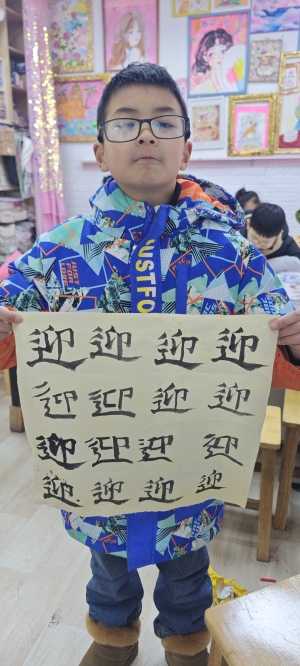 JUSTFO
迎迎迎迎
迎迎迎迎
迎迎迎迎
迎迎迎迎